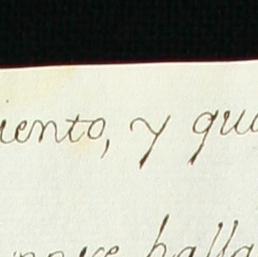 iento, y que
halla